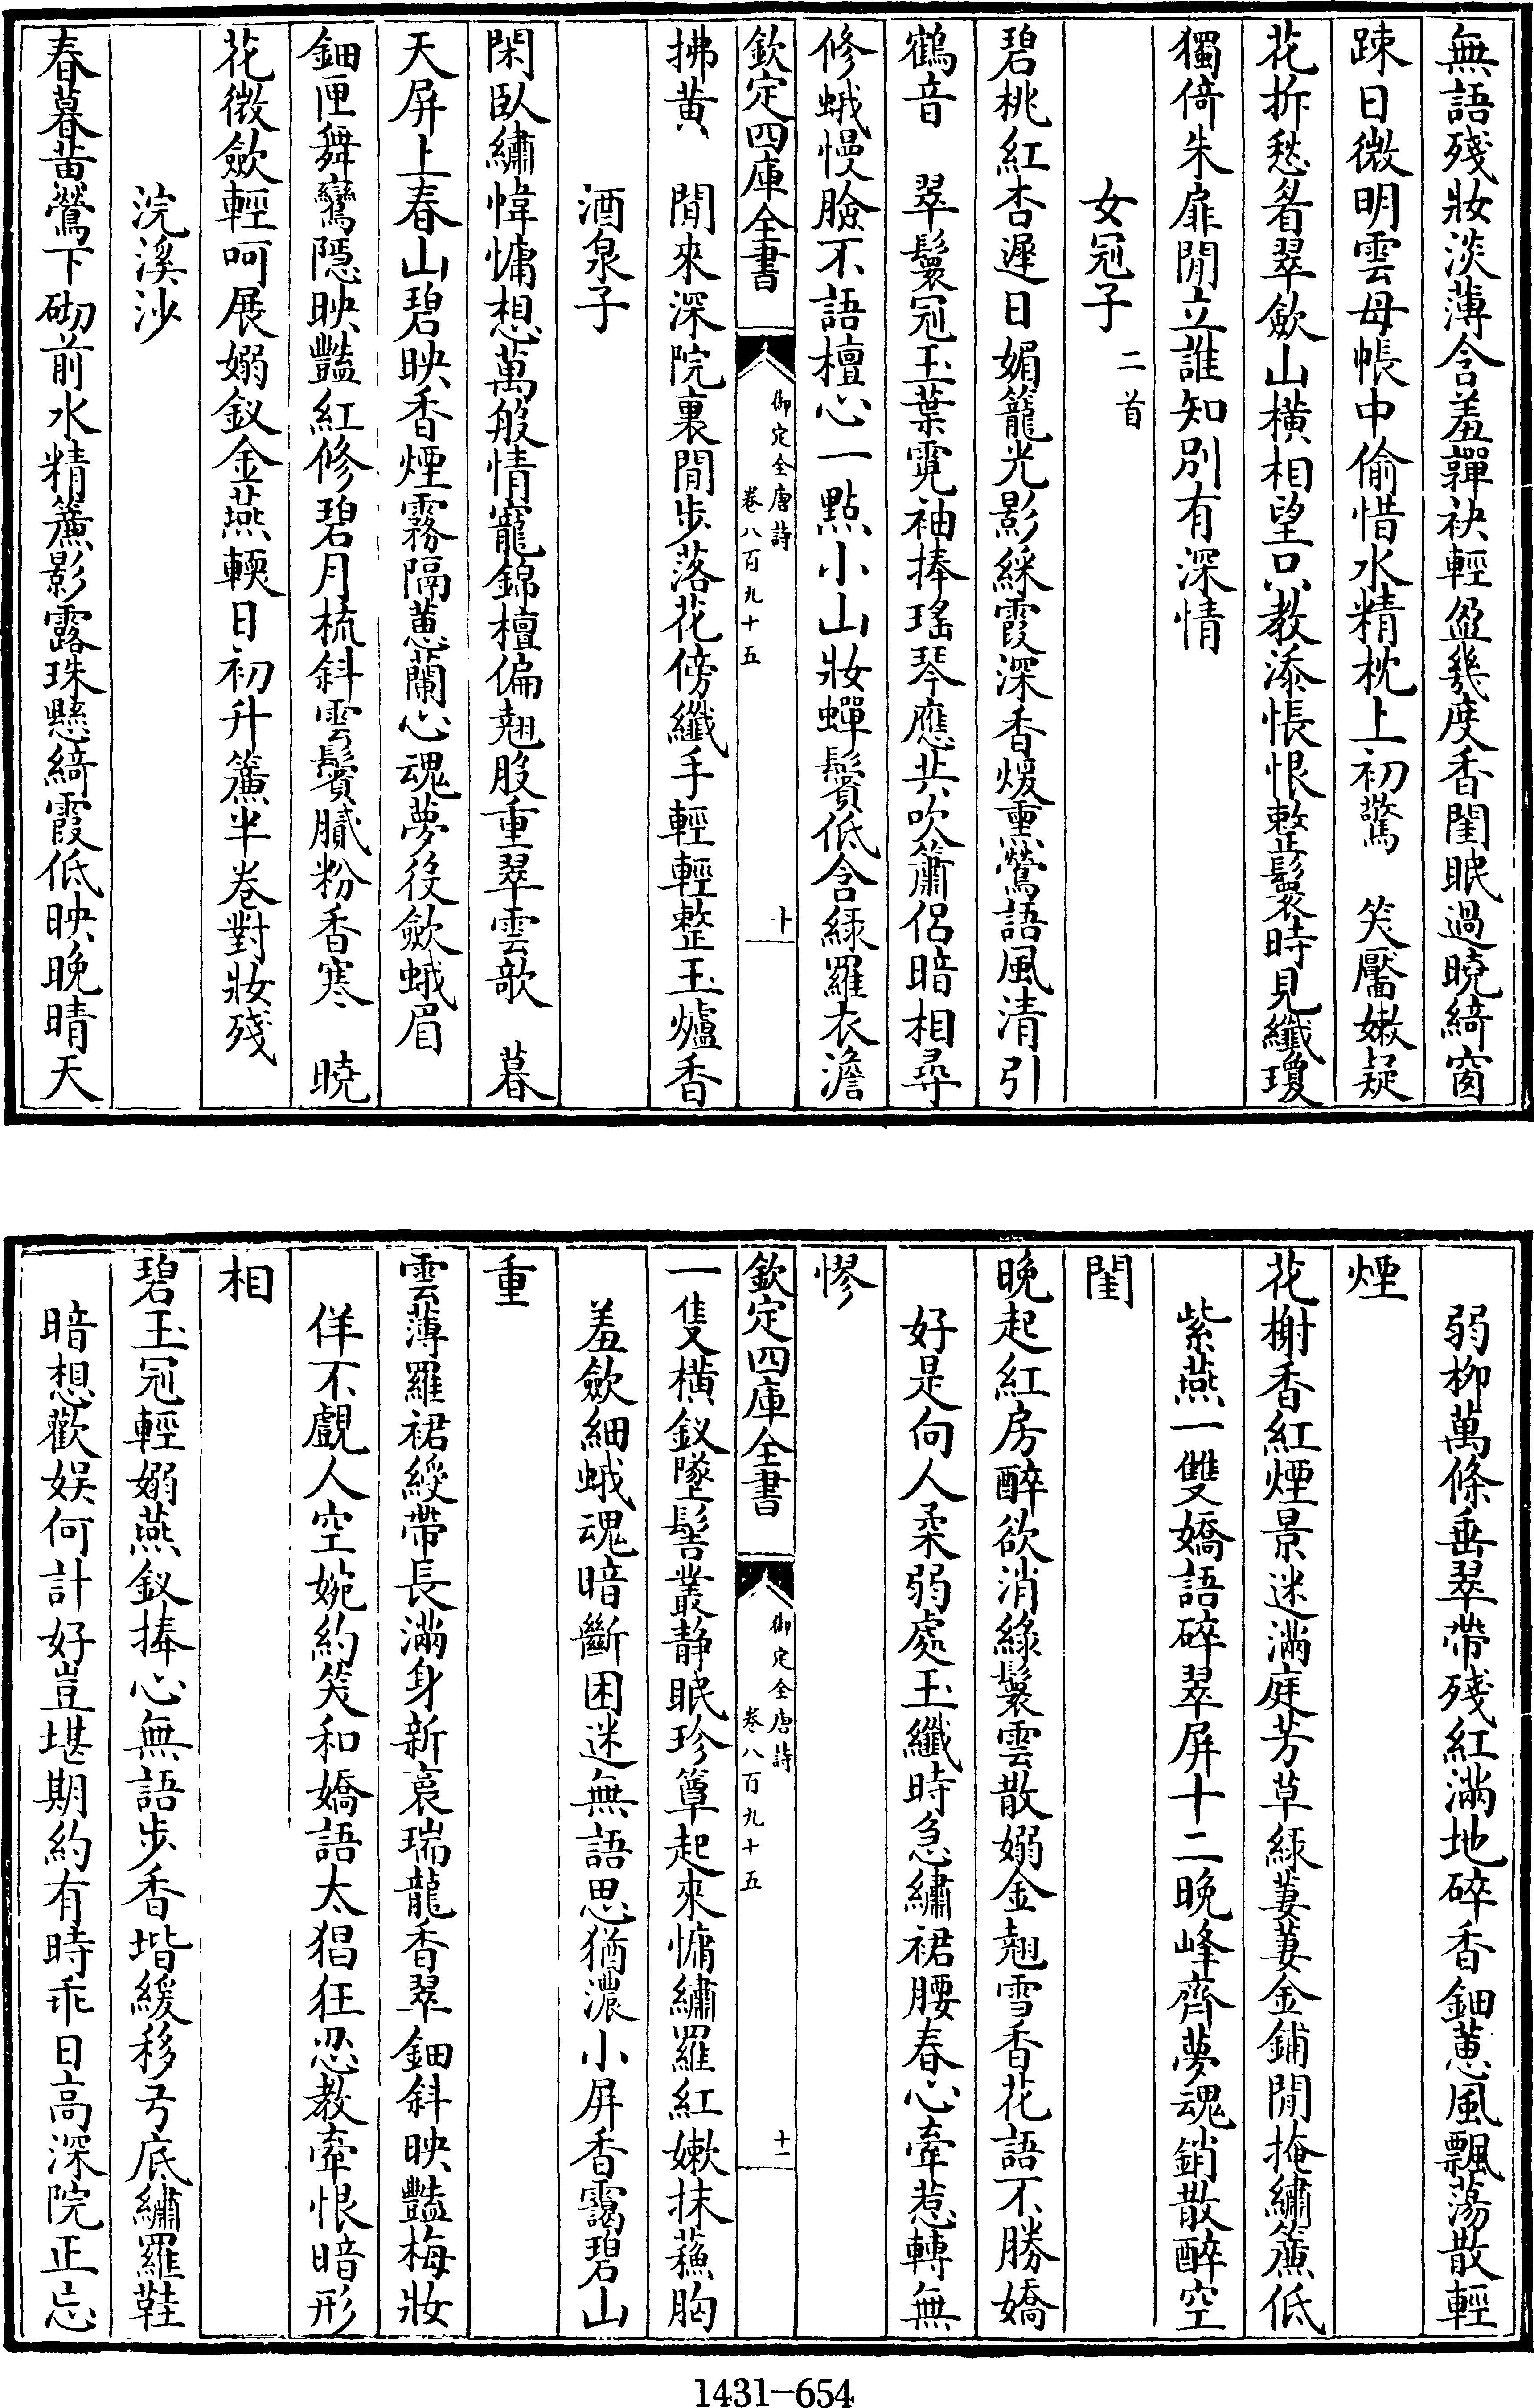 無語殘妝淡薄含羞嚲袂輕盈幾度香閨眠過曉綺窗
踈日微明雲母帳中偷惜水精枕上初驚　笑靨嫩疑
花拆愁眉翠斂山橫相望只教添悵恨整鬟時見纖瓊
獨倚朱扉閒立誰知別有深情
女冠子　二首
碧桃紅杏遲日媚籠光影綵霞深香煖熏鶯語風清引
鶴音　翠鬟冠玉葉霓袖捧瑤琴應共吹簫侶暗相尋
修蛾慢臉不語檀心一點小山妝蟬鬢低含綠羅衣澹
欽定四庫全書　御定全唐詩　卷八百九十五　十
拂黃　閒來深院裏閒步落花傍纖手輕輕整玉爐香
酒泉子
閑臥繡幃慵想萬般情寵錦檀偏翹股重翠雲欹　暮
天屏上春山碧映香煙霧隔蕙蘭心魂夢役斂蛾眉
鈿匣舞鸞隱映豔紅修碧月梳斜雲鬢膩粉香寒　曉
花微斂輕呵展嫋釵金燕輭日初升簾半卷對妝殘
浣溪沙
春暮黃鶯下砌前水精簾影露珠懸綺霞低映晚晴天
弱柳萬條垂翠帶殘紅滿地碎香鈿蕙風飄蕩散輕
煙
花榭香紅煙景迷滿庭芳草綠萋萋金鋪閒掩繡簾低
紫燕一雙嬌語碎翠屏十二晚峰齊夢魂銷散醉空
閨
晚起紅房醉欲消綠鬟雲散嫋金翹雪香花語不勝嬌
好是向人柔弱處玉纖時急繡裙腰春心牽惹轉無
憀
欽定四庫全書　御定全唐詩　卷八百九十五　十一
一隻橫釵墜髻叢靜眠珍簟起來慵繡羅紅嫩抹蘇胸
羞斂細蛾魂暗斷困迷無語思猶濃小屏香靄碧山
重
雲薄羅裙綬帶長滿身新裛瑞龍香翠鈿斜映豔梅妝
佯不覷人空婉約笑和嬌語太猖狂忍教牽恨暗形
相
碧玉冠輕嫋燕釵捧心無語步香堦緩移弓底繡羅鞋
暗想歡娛何計好豈堪期約有時乖日高深院正忘
1431-654